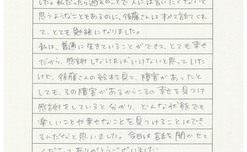 した。私だったら過去のことで人には言いたくないと
思うようなこともあるのに、後藤さんはすべて話してくれ
て、とても勉強になりました。
私は、普通に生きていることができて、とても幸せ
だから、感謝しなければいけないと思っていました
けど、後藤さんの絵本を見て、障害があったとし
ても、その障害があるからこその幸せを見つけ
感謝をしていると分かり、どんな状態でも
楽しいことや幸せなことを見つけることはでき
るんだなと思いました。今日は話を聞かせて
くださってありがとうございました!